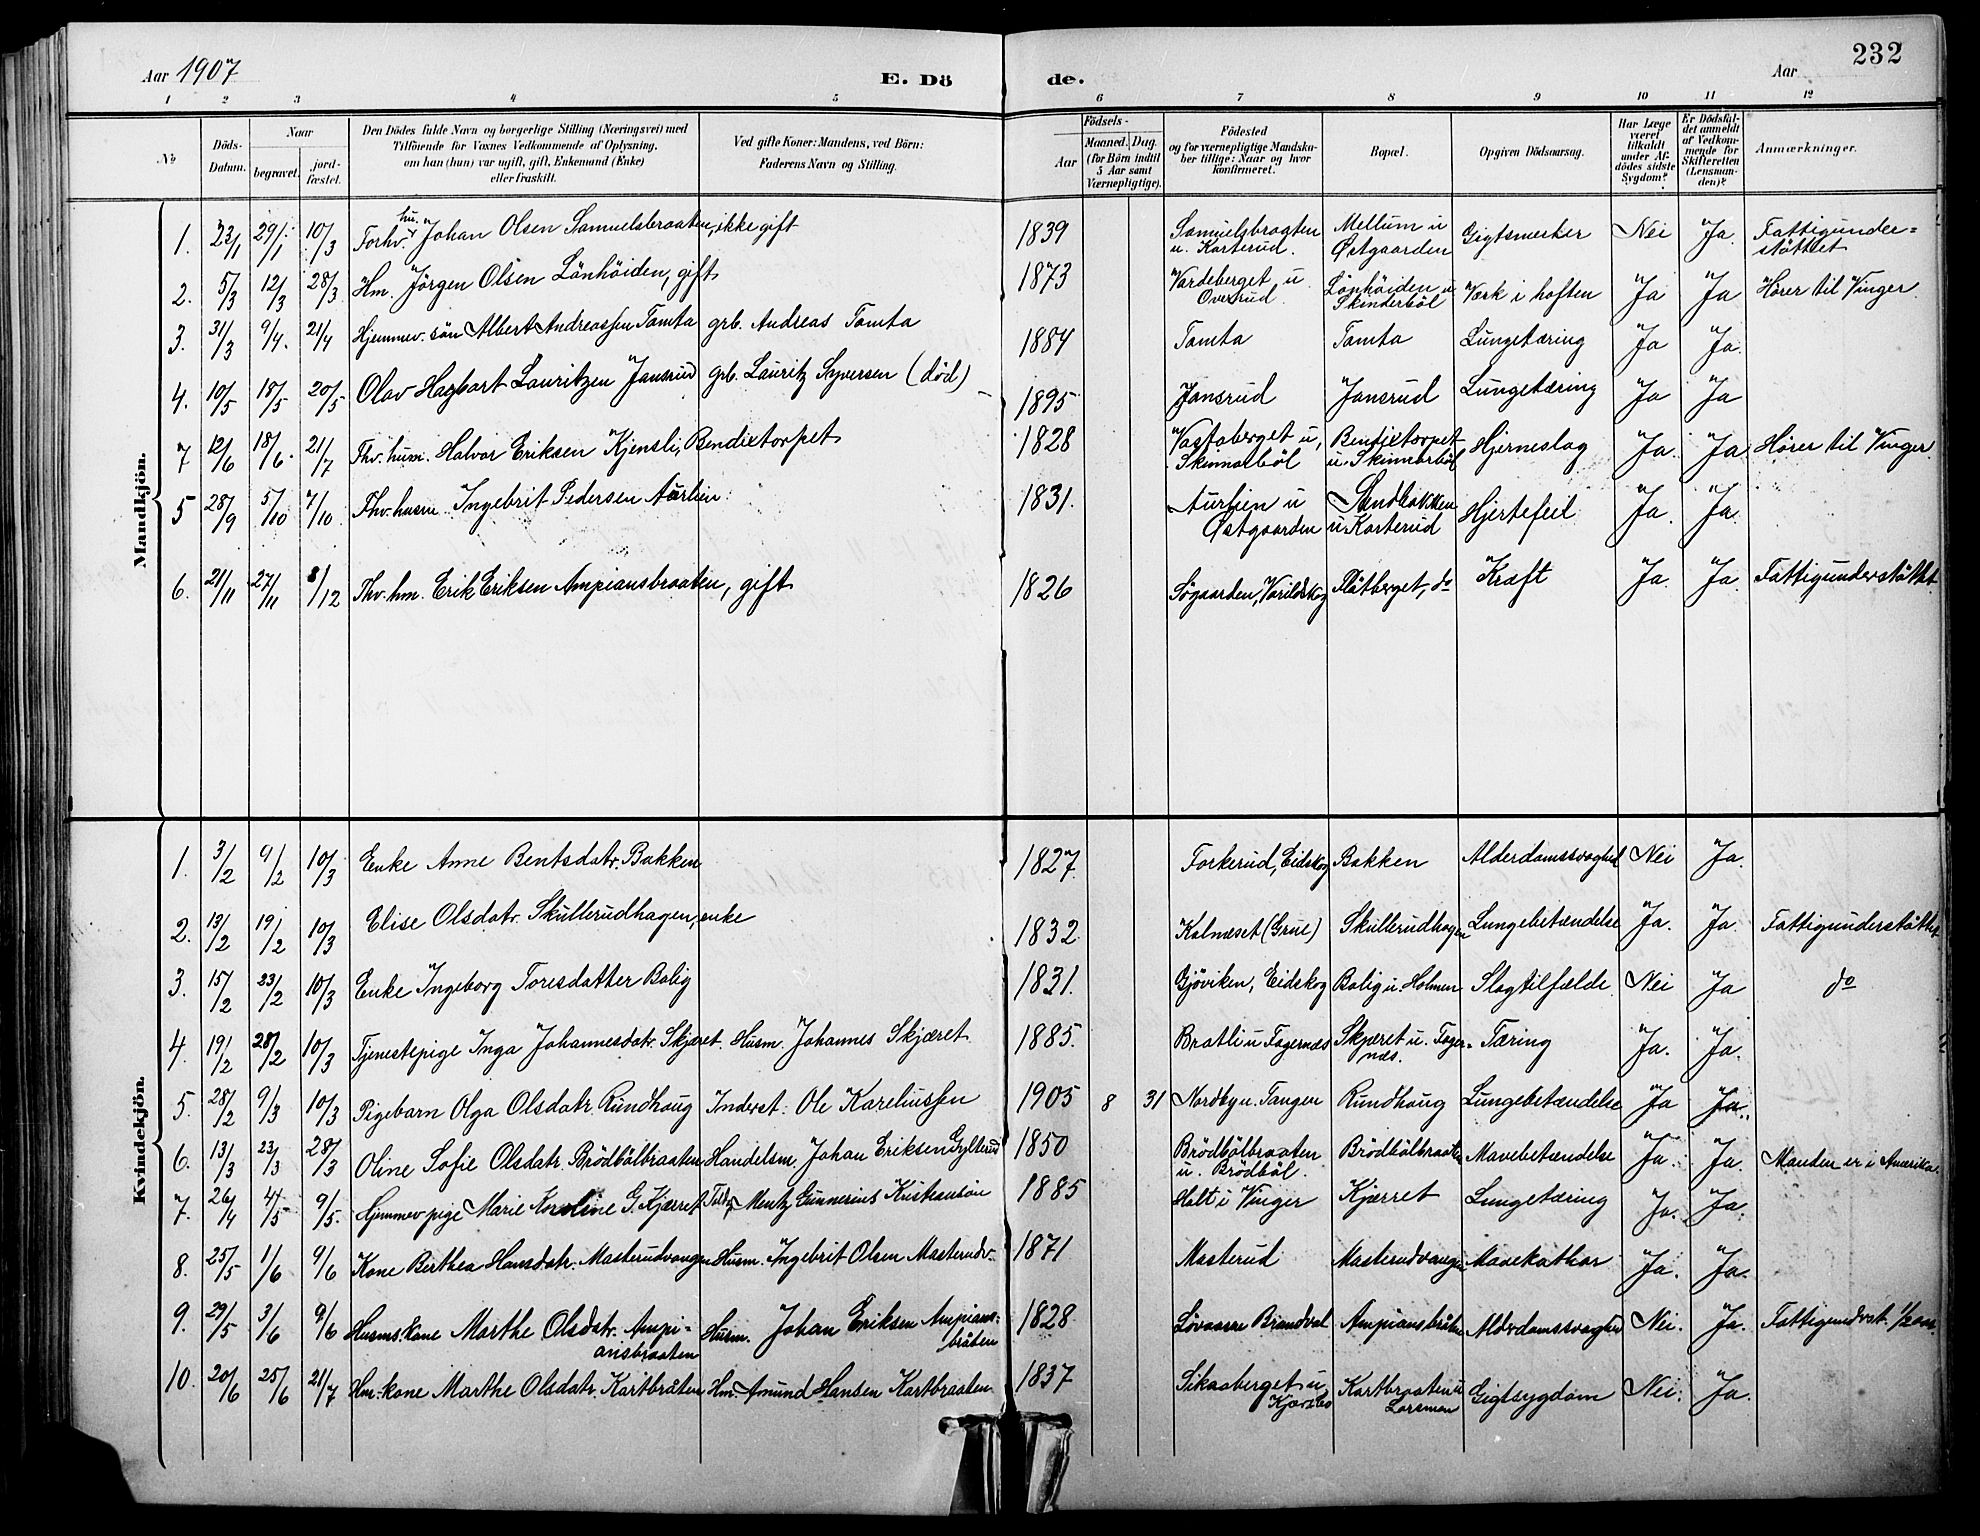 Aar 1907 E. Dö de. Aar 232
1 2 3 4 5 6 7 8 9 10 11 12
No
Döds-Datum.
Naar
begravet.
jordfæstet.
Den Dödes fulde Navn og borgerlige Stilling (Næringsvei) med
Tilföiende for Voxnes Vedkommende af Oplysning,
om han (hun) var ugift, gift, Enkemand (Enke)
eller fraskilt.
Ved gifte Koner: Mandens, ved Börn:
Faderens Navn og Stilling.
Födsels-
Aar
Maaned. Dag.
(for Börn indtil
5 Aar samt
Værnepligtige).
Födested
og for værnepligtige Mandska-
ber tillige: Naar og hvor
konfirmeret.
Bopæl.
Opgiven Dödsaarsag.
Har Læge
været
tilkaldt
under Af-
dödes sidste
Sygdom?
Er Dödsfal-
det anmeldt
af Vedkom-
mende for
Skifteretten
(Lensman-
den)?
Anmærkninger.
Mandkjön.
1. 23/1 29/1 10/3 Forhv. hu. Johan Olsen Samuelsbraaten, ikke gift 1839 Samuelsbraaten u. Karterud. Mellum u Østgaarden Gigtsmerker Nei Ja. Fattigunder=
støttet
2. 5/3 12/3 28/3 Hm. Jörgen Olsen Lönhöiden, gift 1873 Vardeberget u Overud. Lönhöiden u Skinderböl Værk i hoften Ja Ja Hører til Vinger
3. 31/3 9/4. 21/4 Hjemmev. sön Albert Andreassen Tomta grb. Andreas Tomta 1884 Tomta Tomta Lungetæring Ja Ja.
4. 10/5 18/5 20/5 Olav Hagbart Lauritzen Jansrud grb. Lauritz Syversen (död) 1895 Jansrud Jansrud Lungetæring Ja Ja
7 12/6 18/6. 21/7 Fhv. husm. Halvor Eriksen Kjensli, Bendixtorpet 1828 Vastaberget u, Skinnarböl Bendixtorpet u. Skinnarböl Hjerneslag Ja. Ja Hører til Vinger.
5 28/9 5/10 7/10. Fhv. husm Ingebrit Pedersen Aurlien. 1831. Aurlien u Østgaarden Sandbakken u. Karterud Hjertefeil Ja. Ja.
6. 21/11 27/11 8/12 Fhv. hm. Erik Eriksen Ampiansbraaten, gift 1826 Søgaarden, Varildskog Flåtberget, do Kræft Ja. Ja. Fattigunderstøttet
Kvindekjön.
1. 3/2 9/2 10/3 Enke Anne Bentsdatr. Bakken 1827. Forkerud, Eidskog Bakken Alderdomssvaghed Nei Ja.
2. 13/2 19/2 10/3 Elise Olsdatr. Skullerudhagen, enke 1832. Kalnæset (Grue) Skullerudhagen Lungebetændelse Ja. Ja. Fattigunderstøttet
3. 15/2 23/2 10/3 Enke Ingeborg Toresdatter Bolig 1831. Gjöviken, Eidskog Bolig u. Holmen Slagtilfælde Nei Ja do
4. 19/2 28/2 10/3 Tjenestepige Inga Johannesdatr. Skjæret. Husm. Johannes Skjæret 1885. Bratli u Fagernæs Skjæret u. Fager-næs. Tæring Ja. Ja.
5. 28/2 9/3 10/3 Pigebarn Olga Olsdatr. Rundhaug Inderst: Ole Kareliussen 1905 8 31 Nordby u. Tangen Rundhaug Lungebetændelse Ja Ja.
6. 13/3 23/3 28/3 Oline Sofie Olsdatr. Brödbölbraaten Handelsm. Johan Eriksen Gylterud 1850 Brödbölbraaten u. Brödböl. Brödbölbraaten Mavebetændelse Ja. Ja. Manden er i Amerika.
7. 26/4 4/5 9/5. Hjemmev. pige Marie Karoline G. Kjæret Mentz Gunnerius Kristiansön 1885 Holt i Vinger Kjærret Lungetæring Ja. Ja.
8. 25/5 1/6 9/6 Kone Berthea Hansdatr. Masterudvangen Husm. Ingebrit Olsen Masterudv. 1871 Masterud Masterudvangen Mavekathar Ja. Ja.
9. 29/5 3/6 9/6 Husms. kone Marthe Olsdatr. Ampi=
ansbraaten Husm. Johan Eriksen Ampians=
bråten 1828 Lövaasen Brandval Ampiansbråten Alderdomssvaghed Nei. Ja. Fattigundst.
10. 20/6 25/6 21/7 Hm. kone Marthe Olsdatr. Kartbråten Hm. Amund Hansen Kartbraaten 1837 Sikaaberget u Kartbraaten u Larsmoen Gigtsygdom Nei. Ja.